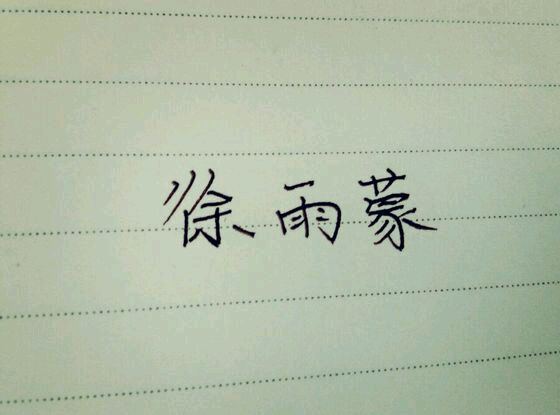 徐雨蒙